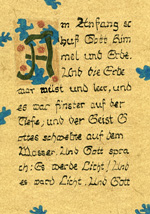 Am Anfang sc
huf Gott Him
mel und Erde.
Und die Erde
war wüst und leer, und
es war finster auf der
Tiefe; und der Geist G
ottes schwebte auf dem
Wasser. Und Gott spra
ch: Es werde Licht! Und
es ward Licht. Und Gott